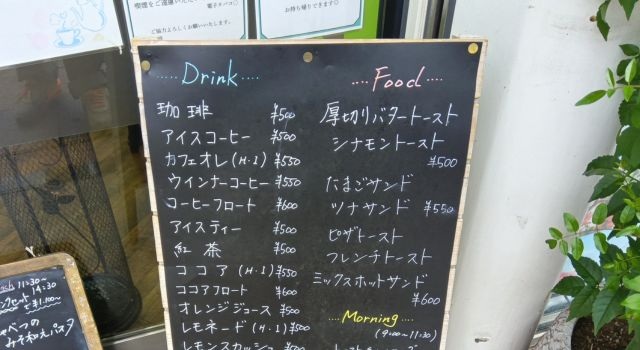 喫煙をご遠慮いただ
電子タバコ◎
ご協力よろしくお願いいたします。
お持ち帰りできます◎
.....Drink....
珈琲 ¥500
アイスコーヒー ¥500
カフェオレ(H・I) ¥550
ウインナーコーヒー ¥550
コーヒーフロート ¥600
アイスティー ¥500
紅茶 ¥500
ココア(H・I) ¥550
ココアフロート ¥600
オレンジジュース ¥500
レモネード(H・I) ¥500
レモンスカッシュ ¥500
....Food....
厚切りバタートースト
シナモントースト
¥500
たまごサンド
ツナサンド ¥550
ピザトースト
フレンチトースト
ミックスホットサンド
¥600
....Morning....
(9:00~11:30)
11:30~
14:30
セット
で¥1,100~
べつの
みそ和えパスタ